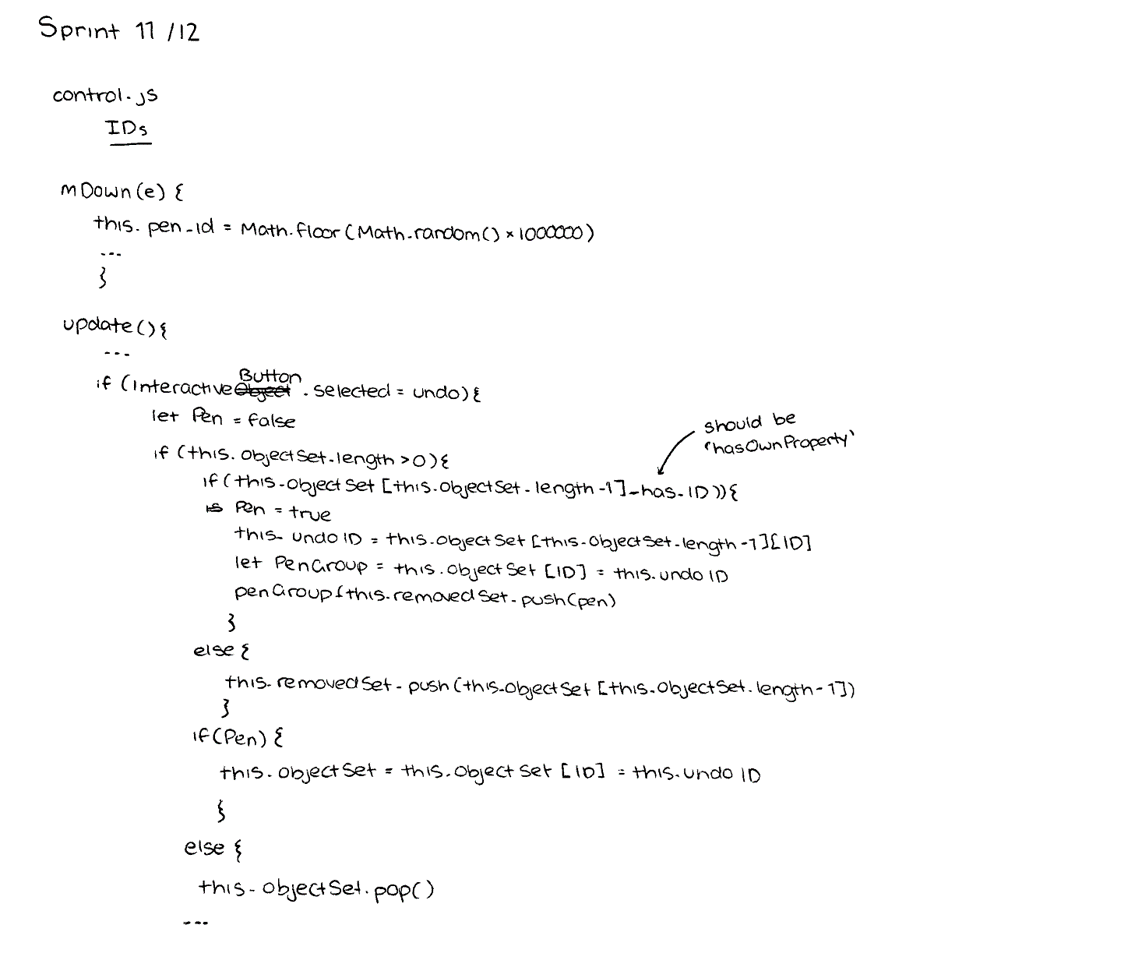 Sprint 11/12
control.js
IDs
mDown(e) {
this.pen-id = Math.floor(Math.random() * 1000000)
...
}
update(){
...
Button
if (InteractiveObject.selected = undo){
let Pen = false
should be
'hasOwnProperty'
if (this.objectSet.length >0){
if(this.objectSet[this.objectSet.length-1].has.ID)){
is Pen = true
this.undoID = this.objectSet[this.objectSet.length-1][ID]
let PenGroup = this.objectSet[ID] = this.undoID
penGroup{this.removedSet.push(pen)
}
else {
this.removedSet.push(this.objectSet[this.objectSet.length-1])
}
if(Pen) {
this.objectSet = this.objectSet[ID] = this.undoID
}
else {
this.objectSet.pop()
...